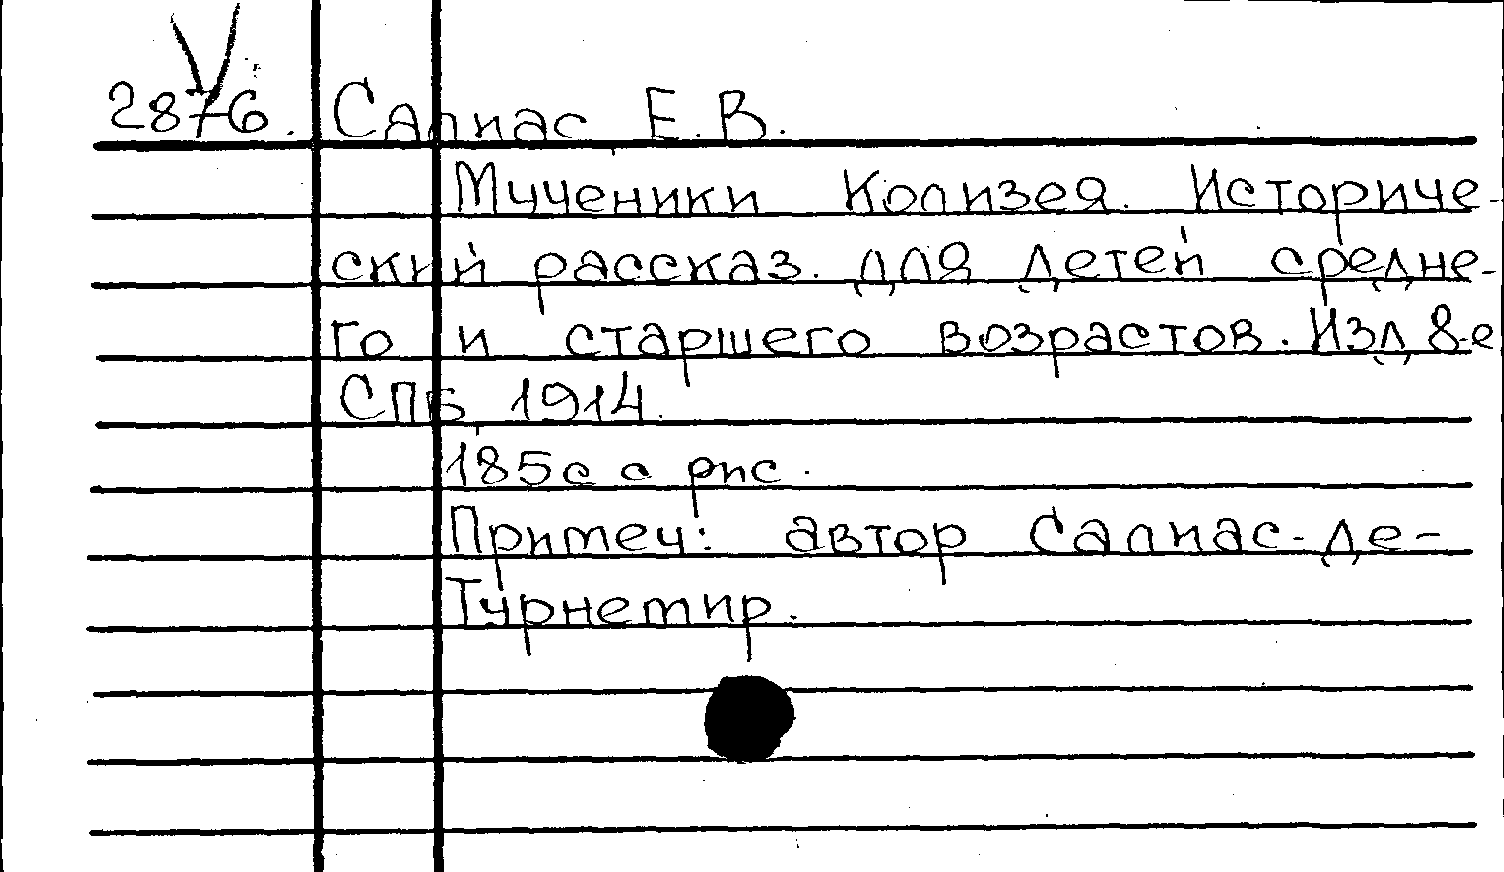 V
2876. Салиас Е.В.
Мученики Колизея. Историче-
ский рассказ. Для детей средне-
го и старшего возрастов. Изд 8-е
СПБ, 1914.
185с с рис.
Примеч: автор Салиас-де-
Турнемир.